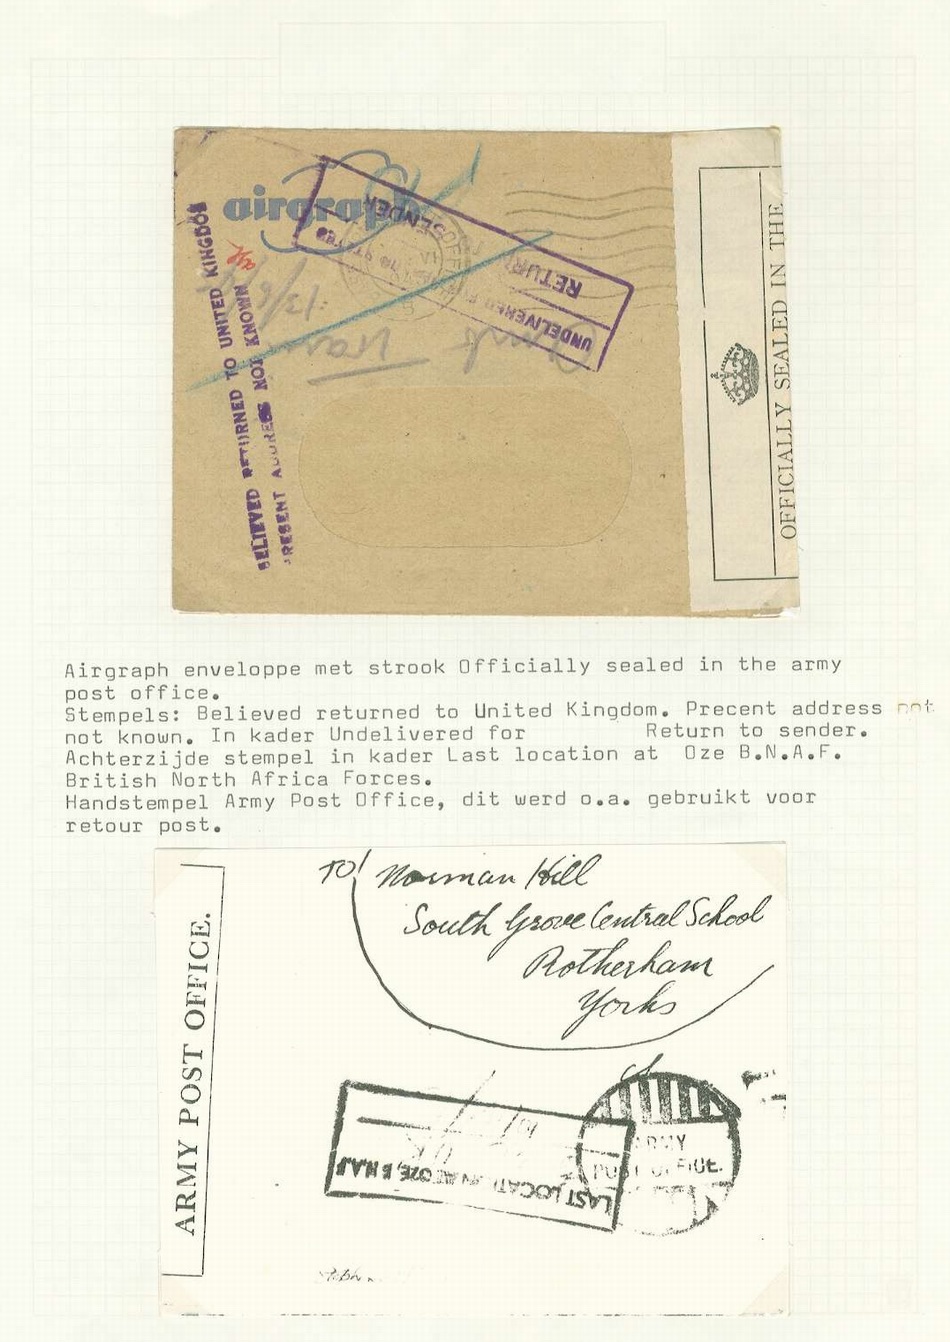 airgraph
BELIEVED RETURNED TO UNITED KINGDOM
PRESENT ADDRESS NOT KNOWN
13/6
UNDELIVERED F
RETURN
SENDER
OFFICIALLY SEALED IN THE
Airgraph enveloppe met strook Officially sealed in the army
post office.
Stempels: Believed returned to United Kingdom. Precent address not
not known. In kader Undelivered for Return to sender.
Achterzijde stempel in kader Last location at Oze B.N.A.F.
British North Africa Forces.
Handstempel Army Post Office, dit werd o.a. gebruikt voor
retour post.
ARMY POST OFFICE.
TO Norman Hill
South Grove Central School
Rotherham
Yorks
LAST LOCATION AT OZE, B.N.A.F
ARMY
POST OFFICE.